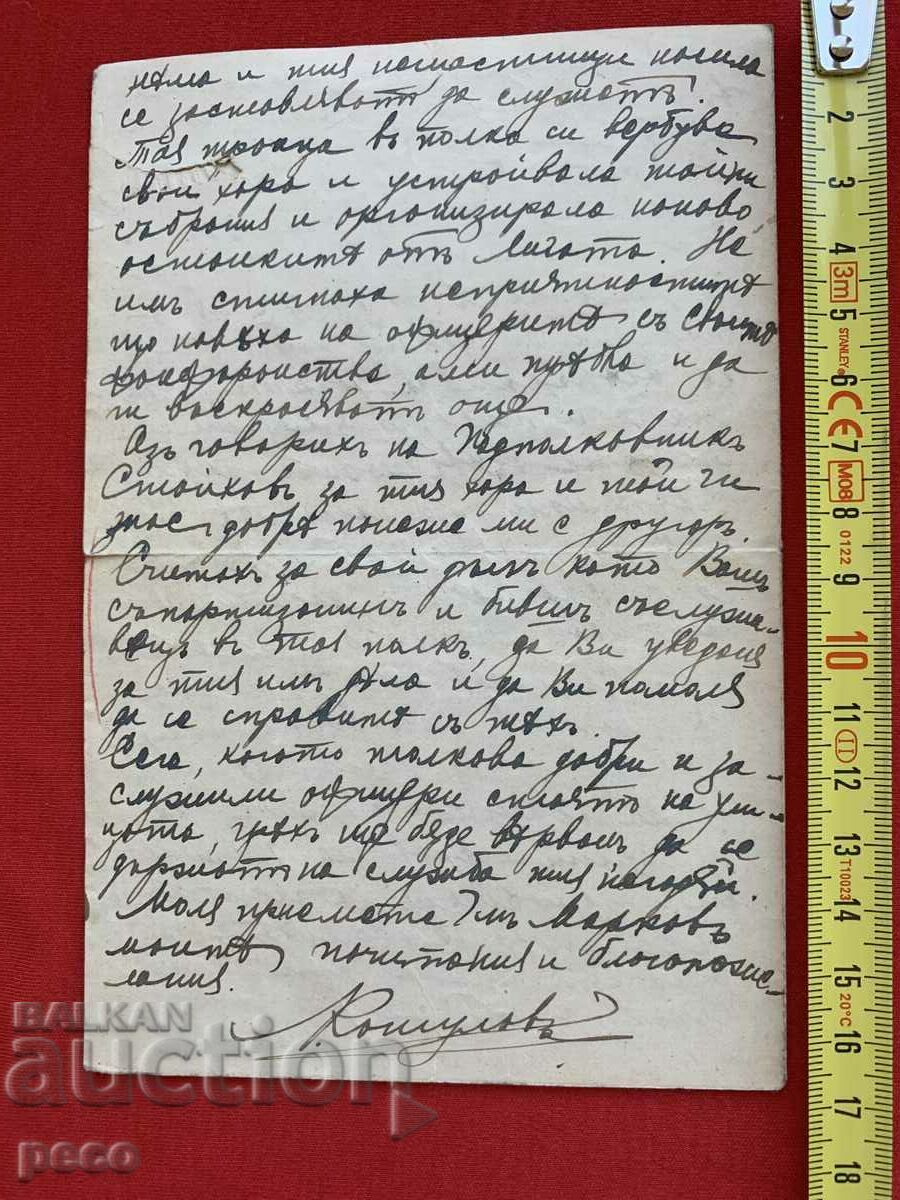 нѣма и тия насила
се заставляватъ да служатъ!
Тая троица въ полка си вербува
свои хора и устройвала тайни
събрания и организирала наново
останкитѣ отъ Лигата. Не
имъ стигаха неприятноститѣ
що навѣха на офицеритѣ съ своитѣ
а ми трѣбва и да
ги възкресяватъ още.
Азъ говорихъ на Подполковникъ
Стойковъ за тия хора и той ги
знае добрѣ понеже ми е другарь.
Считахъ за свой дългъ като Вашъ
съпартизанинъ и бившъ съслужи-
вецъ въ тоя полкъ, да Ви уведомя
за тия имъ дѣла и да Ви помоля
да се справите съ тѣхъ.
Сега, когато толкова добри и за-
служили офицери стоятъ на ули-
цата, грѣхъ ще бѫде да се
държатъ на служба тия
Моля приемете Г-нъ Марковъ
моитѣ почитания и благопоже-
лания.
BALKAN
auction
peco
2
3
4
3m
5
STANLEY®
6
CE
7
M08
8
0122
9
10
11
II
12
13
T10023
14
15
20°C
16
17
18